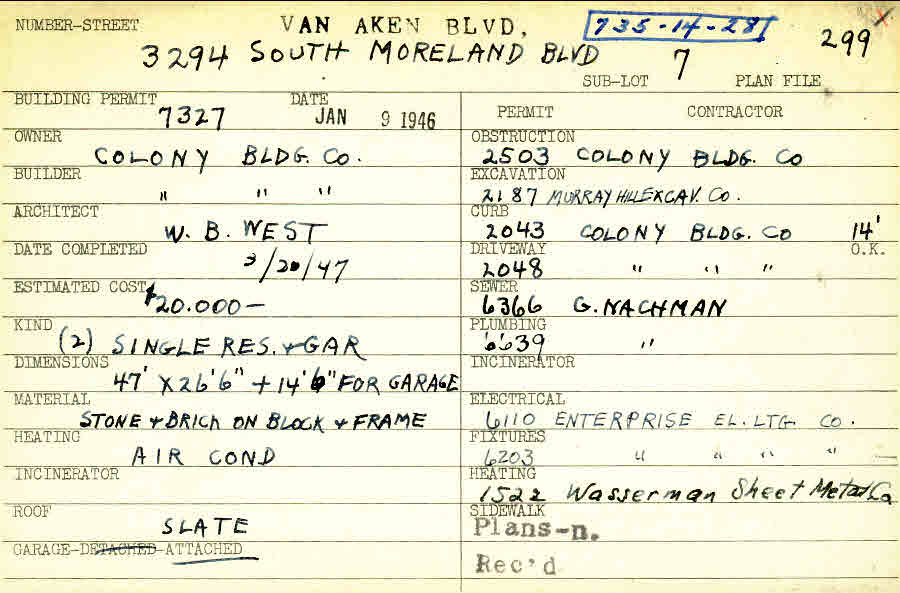 NUMBER-STREET VAN AKEN BLVD. 735-14-28 299
3294 SOUTH MORELAND BLVD 7
SUB-LOT PLAN FILE
BUILDING PERMIT DATE
7327 JAN 9 1946
PERMIT CONTRACTOR
OWNER
COLONY BLDG. CO.
OBSTRUCTION
2503 COLONY BLDG. CO
BUILDER
" " "
EXCAVATION
2187 MURRAY HILL EXCAV. CO.
ARCHITECT
W. B. WEST
CURB
2043 COLONY BLDG. CO 14'
O.K.
DATE COMPLETED
3/20/47
DRIVEWAY
2048 " " "
ESTIMATED COST
$20.000—
SEWER
6366 G. NACHMAN
KIND
(2) SINGLE RES. + GAR
PLUMBING
6639 "
DIMENSIONS
47' X 26'6" + 14'6" FOR GARAGE
INCINERATOR
MATERIAL
STONE + BRICK ON BLOCK + FRAME
ELECTRICAL
6110 ENTERPRISE EL. LTG. CO.
HEATING
AIR COND
FIXTURES
6203 " " " "
INCINERATOR
HEATING
1522 Wasserman Sheet Metal Co
ROOF
SLATE
SIDEWALK
Plans-n.
GARAGE-DETACHED-ATTACHED
Rec'd